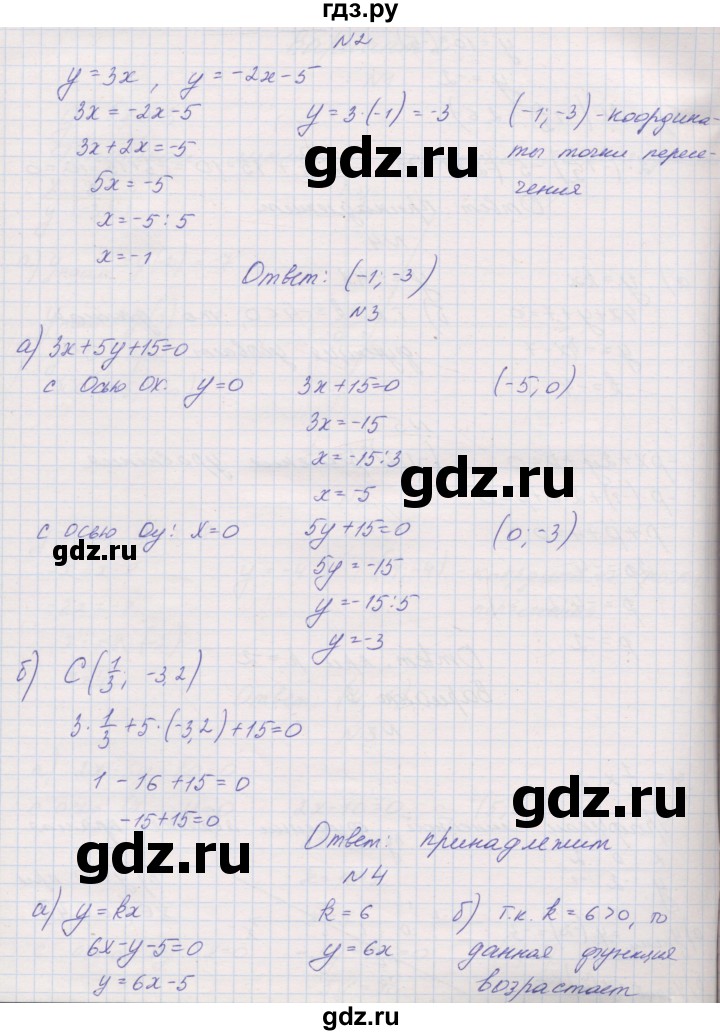 гдз.ру
№2
y = 3x, y = -2x-5
3x = -2x-5 y = 3·(-1) = -3 (-1; -3) - координа-
3x+2x = -5 ты точки пересе-
5x = -5 чения
x = -5:5
x = -1
Ответ: (-1; -3)
№3
а) 3x+5y+15=0
с осью OX: y=0 3x+15=0 (-5; 0)
3x = -15
x = -15:3
gdz.ru
x = -5
с осью Oy: X=0 5y+15=0 (0; -3)
gdz.ru
5y = -15
y = -15:5
y = -3
б) C(1/3; -3,2)
3·1/3+5·(-3,2)+15=0
1-16+15=0
gdz.ru
-15+15=0
gdz.ru
Ответ: принадлежит
№4
а) y=kx k=6 б) т.к. k=6>0, то
6x-y-5=0 y=6x данная функция
y=6x-5 возрастает